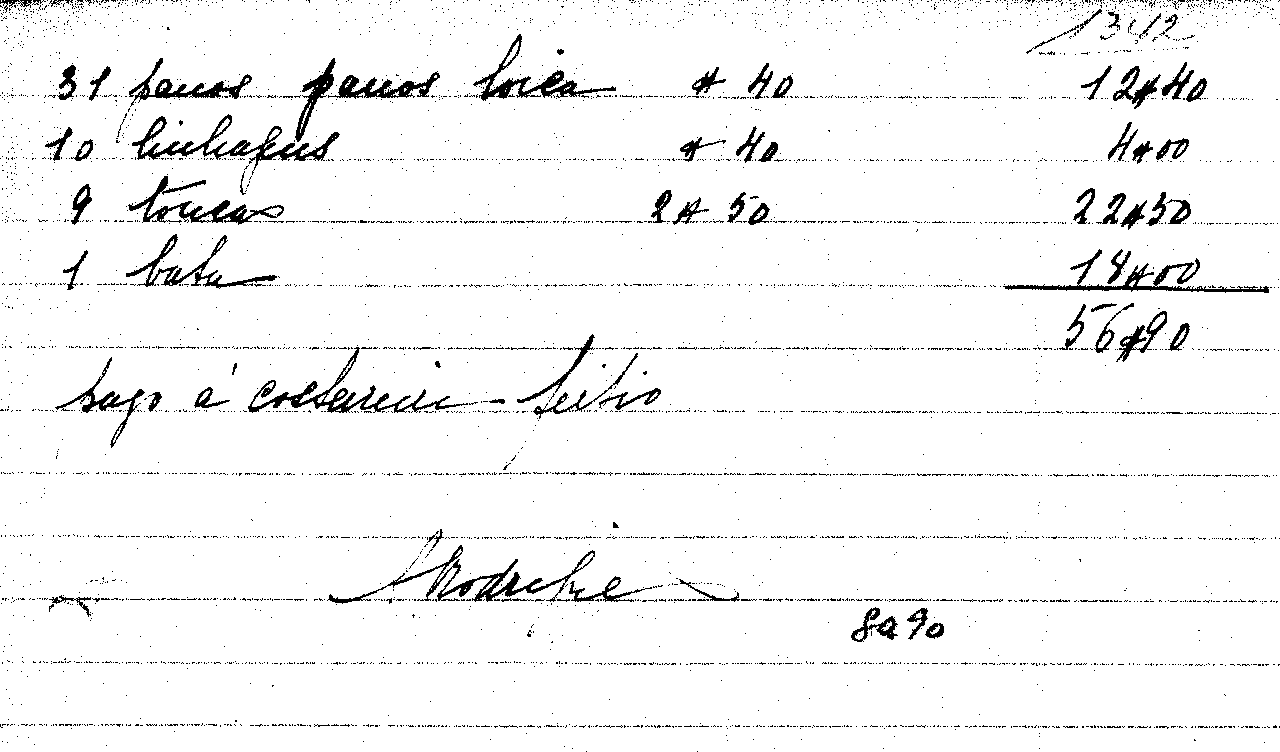 1342
31 panos panos loiça $ 40 12$40
10 linhagens $ 40 4$00
9 toucas 2$50 22$50
1 bata 18$00
56$90
pago á costureira feitio
ARodrigues